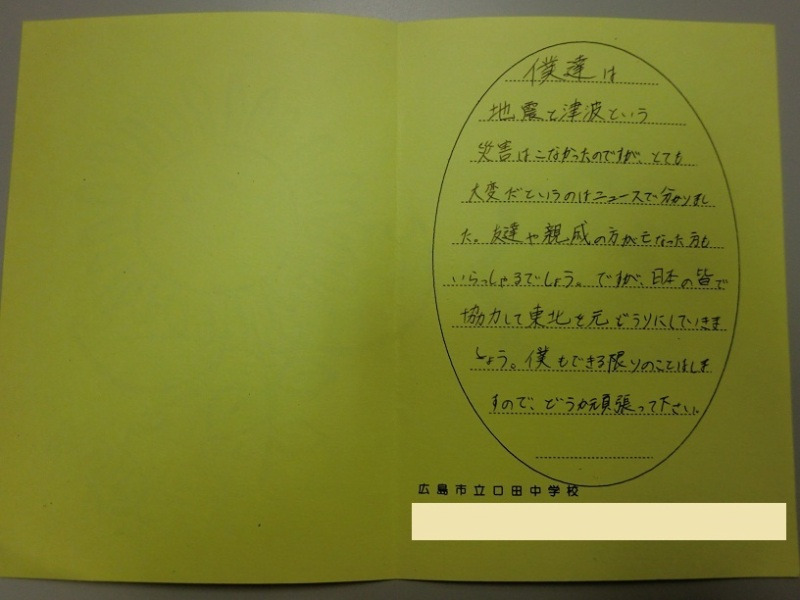 僕達は
地震と津波という
災害はこなかったのですが、とても
大変だというのはニュースで分かりまし
た。友達や親戚の方が亡なった方も
いらっしゃるでしょう。ですが、日本の皆で
協力して東北を元どうりにしていきま
しょう。僕もできる限りのことはしま
すので、どうか頑張って下さい。
広島市立口田中学校